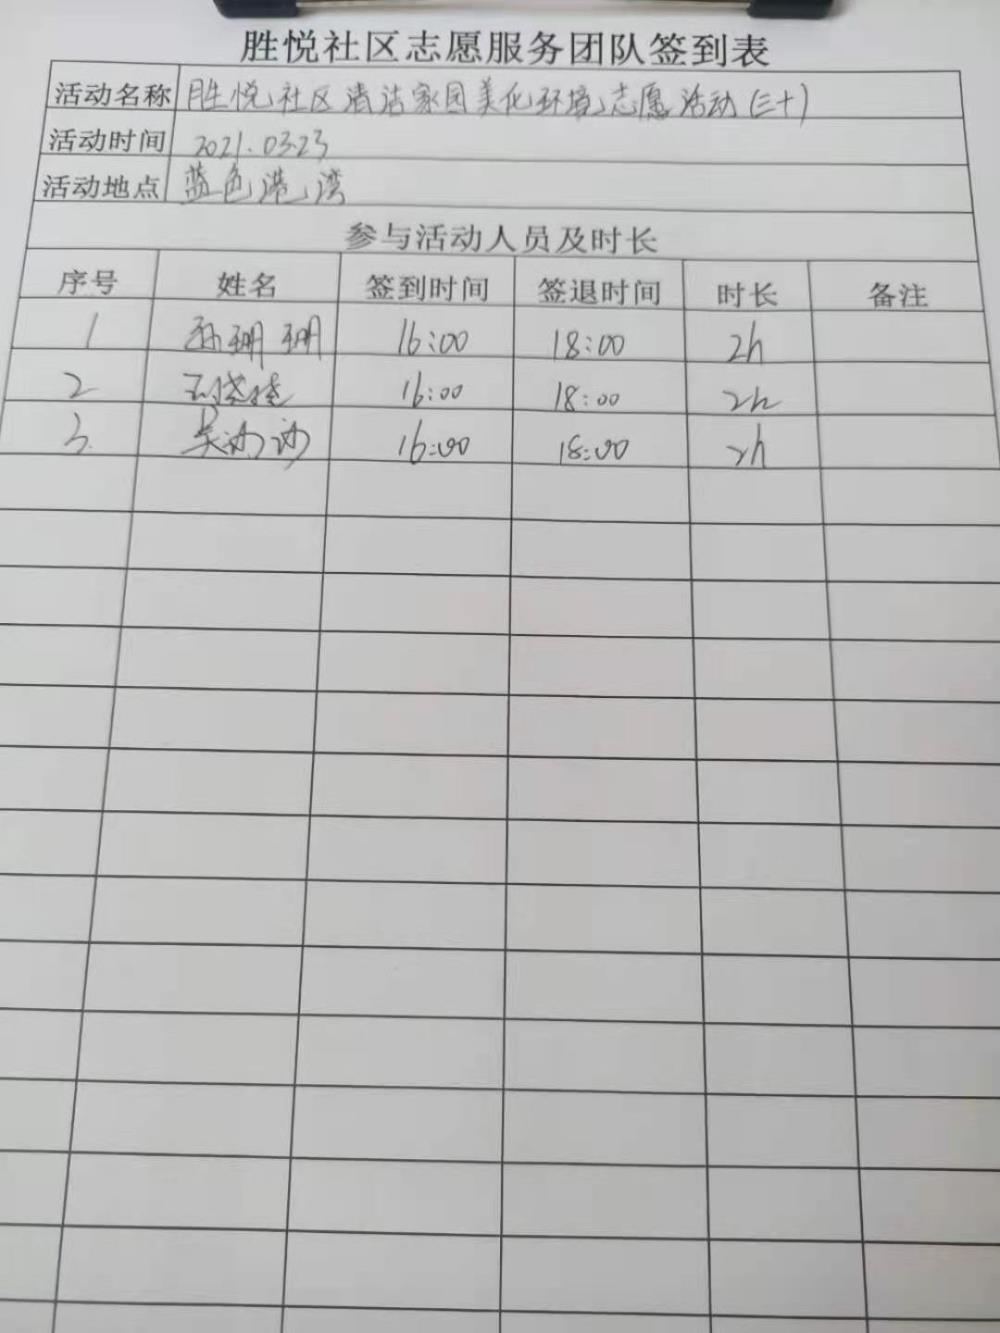 胜悦社区志愿服务团队签到表
活动名称 胜悦社区清洁家园美化环境志愿活动(三十)
活动时间 2021.03.23
活动地点 蓝色港湾
参与活动人员及时长
序号 姓名 签到时间 签退时间 时长 备注
1 孙珊珊 16:00 18:00 2h
2 16:00 18:00 2h
3. 16:00 18:00 2h